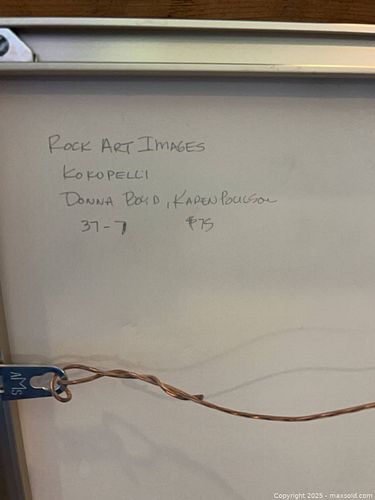 ROCK ART IMAGES
KOKOPELLI
DONNA BOYD, KAREN POULSON
37-7 $75
AMS
Copyright 2025 - maxsold.com